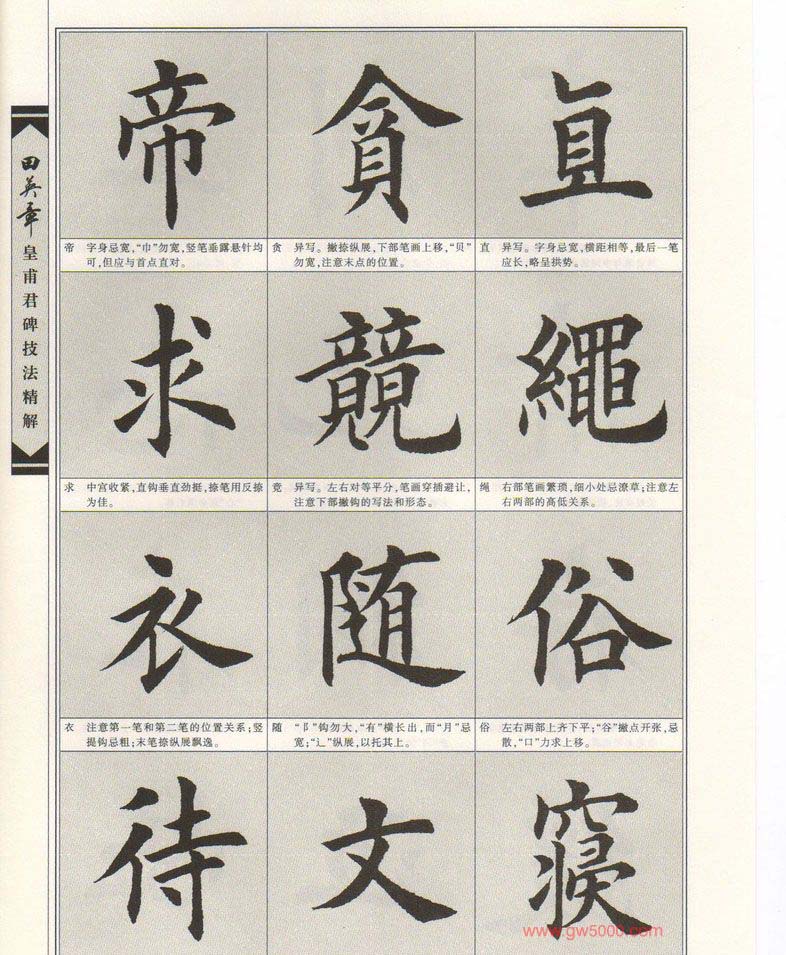 田英章
皇甫君碑技法精解
帝 貪 直
帝 字身忌宽,“巾”勿宽,竖笔垂露悬针均
可,但应与首点直对。
贪 异写。撇捺纵展,下部笔画上移,“贝”
勿宽,注意末点的位置。
直 异写。字身忌宽,横距相等,最后一笔
应长,略呈拱势。
求 競 繩
求 中宫收紧,直钩垂直劲挺,捺笔用反捺
为佳。
竞 异写。左右对等平分,笔画穿插避让,
注意下部撇钩的写法和形态。
绳 右部笔画繁琐,细小处忌潦草;注意左
右两部的高低关系。
衣 随 俗
衣 注意第一笔和第二笔的位置关系;竖
提钩忌粗;末笔捺纵展飘逸。
随 “阝”钩勿大,“有”横长出,而“月”忌
宽;“辶”纵展,以托其上。
俗 左右两部上齐下平;“谷”撇点开张,忌
散,“口”力求上移。
待 文
www.gw5000.com